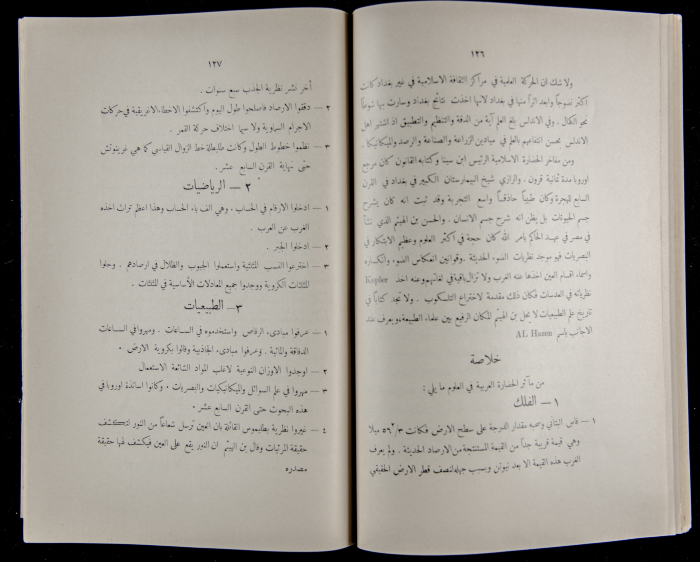 ١٢٦
ولا شك ان الحركة العلمية في مراكز الثقافة الاسلامية في غير بغداد كانت
اكثر نضوجاً وابعد اثراً منها في بغداد لانها اخذت نتائج بغداد وسارت بها شوطاً
نحو الكمال . وفي الاندلس بلغ العلم آية من الدقة والتنظيم والتطبيق اذ اشتهر اهل
الاندلس بحسن انتفاعهم بالعلم في ميادين الزراعة والصناعة والرصد والميكانيكا .
ومن مفاخر الحضارة الاسلامية الرئيس ابن سينا وكتابه القانون كان مرجع
اوروبا مدة ثمانية قرون . والرازي شيخ البيمارستان الكبير في بغداد في القرن
السابع للهجرة وكان طبيباً حاذقاً واسع التجربة وقد ثبت انه كان يشرح
جسم الحيوانات بل يظن انه شرح جسم الانسان . والحسن بن الهيثم الذي نشأ
في مصر في عهد الحاكم بامر الله كان حجة في اكثر العلوم وعظيم الابتكار في
البصريات فهو موجد نظريات الضوء الحديثة وقوانين انعكاس الضوء وانكساره
واسماء اقسام العين اخذها عنه الغرب ولا تزال باقية في لغاتهم وعنه اخذ Kepler
نظرياته في العدسات فكان ذلك مقدمة لاختراع التلسكوب . ولا تجد كتاباً في
تاريخ علم الطبيعيات لا يحل بن الهيثم المكان الرفيع بين علماء الطبيعة ويعرف عند
الاجانب باسم AL Hazen
خلاصة
من مآثر الحضارة العربية في العلوم ما يلي :
١ — الفلك
١ — قاس البتاني وصحبه مقدار الدرجة على سطح الارض فكانت ٥٦٢/٣ ميلا
وهي قيمة قريبة جداً من القيمة المستنتجة من الارصاد الحديثة . ولم يعرف
الغرب هذه القيمة الا بعد نيوتن وبسبب جهله لنصف قطر الارض الحقيقي
١٢٧
أخر نشر نظرية الجذب سبع سنوات .
٢ — دققوا الارصاد فاصلحوا طول اليوم واكتشفوا الاخطاء الاغريقية في حركات
الاجرام السماوية ولا سيما اختلاف حركة القمر .
٣ — نظموا خطوط الطول وكانت طليطلة خط الزوال القياسي كما هي غرينوتش
حتى نهاية القرن السابع عشر .
٢ — الرياضيات
١ — ادخلوا الارقام في الحساب . وهي الف باء الحساب وهذا اعظم تراث اخذه
الغرب عن العرب .
٢ — ادخلوا الجبر .
٣ — اخترعوا النسب المثلثية واستعملوا الجيوب والظلال في ارصادهم . وحلوا
المثلثات الكروية ووجدوا جميع المعادلات الأساسية في المثلثات .
٣ — الطبيعيات
١ — عرفوا مبادىء الرقاص واستخدموه في الساعات . ومهروا في الساعات
الدقاقة والمائية . وعرفوا مبادىء الجاذبية وقالوا بكروية الارض .
٢ — اوجدوا الاوزان النوعية لاغلب المواد الشائعة الاستعمال
٣ — مهروا في علم السوائل والميكانيكيات والبصريات . وكانوا اساتذة اوروبا في
هذه البحوث حتى القرن السابع عشر .
٤ — غيروا نظرية بطليموس القائلة بان العين ترسل شعاعاً من النور لتكشف
حقيقة المرئيات وقال بن الهيثم ان النور يقع على العين فيكشف لها حقيقة
مصدره